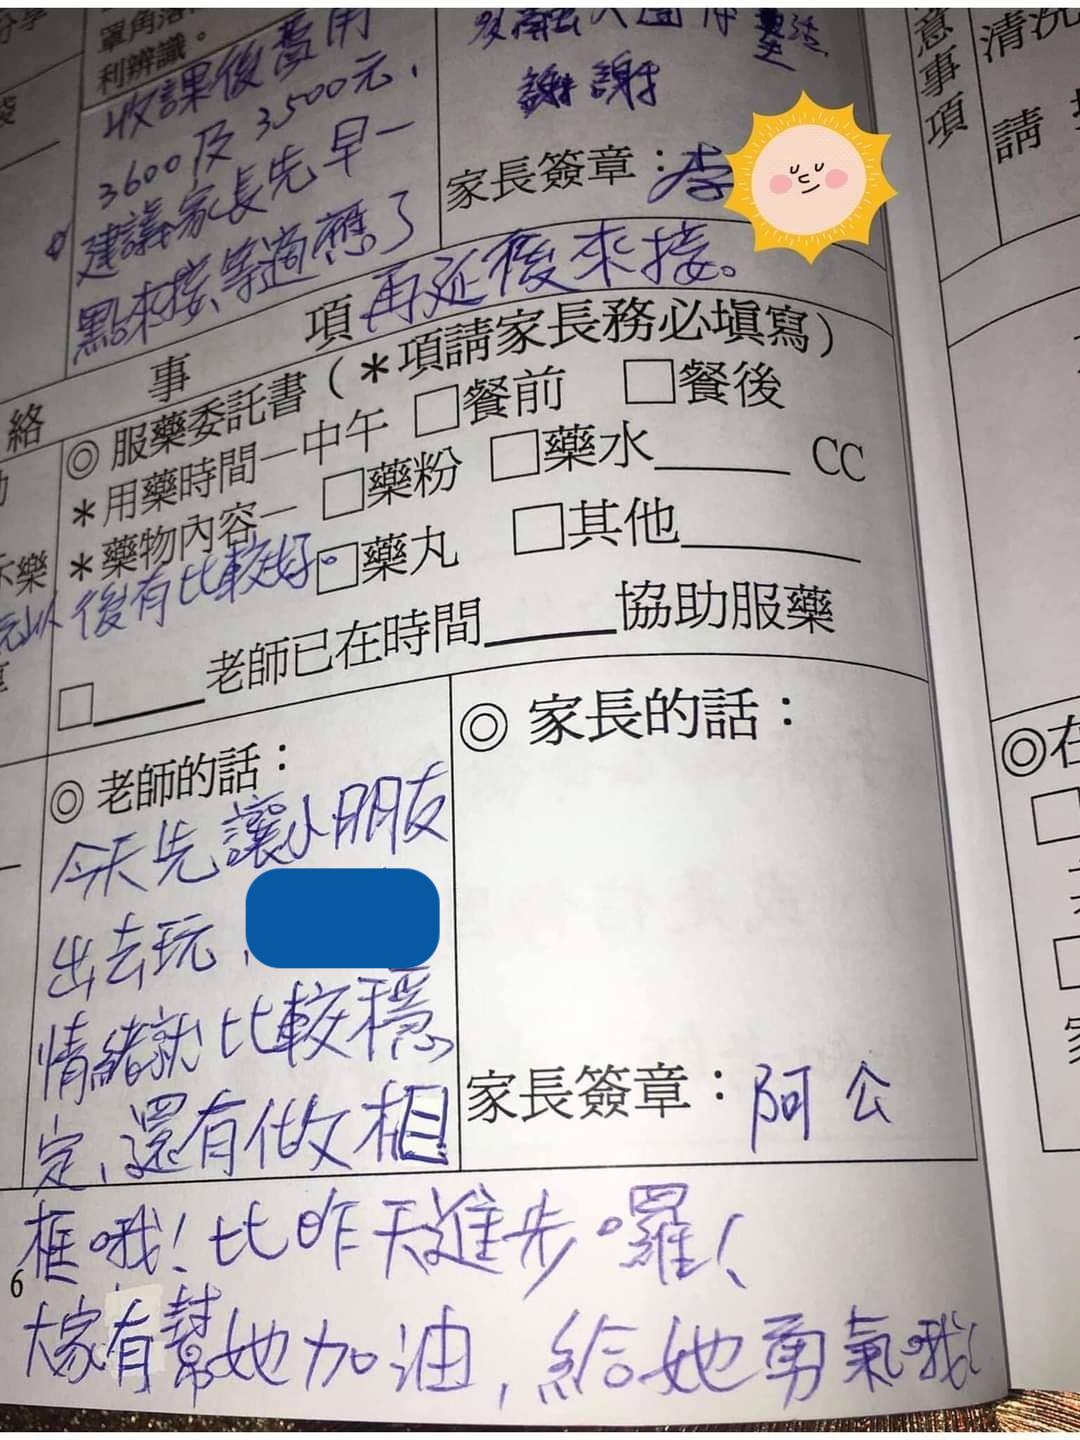 單角落
利辨識。
收課後費用
3600及3500元，
建議家長先早一
點來接，等適應了
再延後來接。
謝謝
家長簽章：李
意事項
清洗
請
絡
事 項
◎ 服藥委託書（＊項請家長務必填寫）
＊用藥時間－中午 □餐前 □餐後
＊藥物內容－ □藥粉 □藥水______ CC
□藥丸 □其他________
後有比較好。
□_____老師已在時間______協助服藥
◎ 老師的話：
今天先讓小朋友
出去玩，
情緒就比較穩
定，還有做相
框哦！比昨天進步囉！
大家有幫她加油，給她勇氣哦！
◎ 家長的話：
家長簽章：阿公
6
◎在